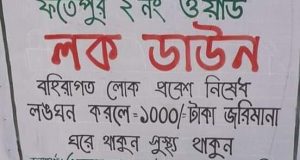 ফতেপুর ২ নং ওয়ার্ড
লক ডাউন
বহিরাগত লোক প্রবেশ নিষেধ
লঙঘন করলে=১০০০/-টাকা জরিমানা
ঘরে থাকুন সুস্থ্য থাকুন